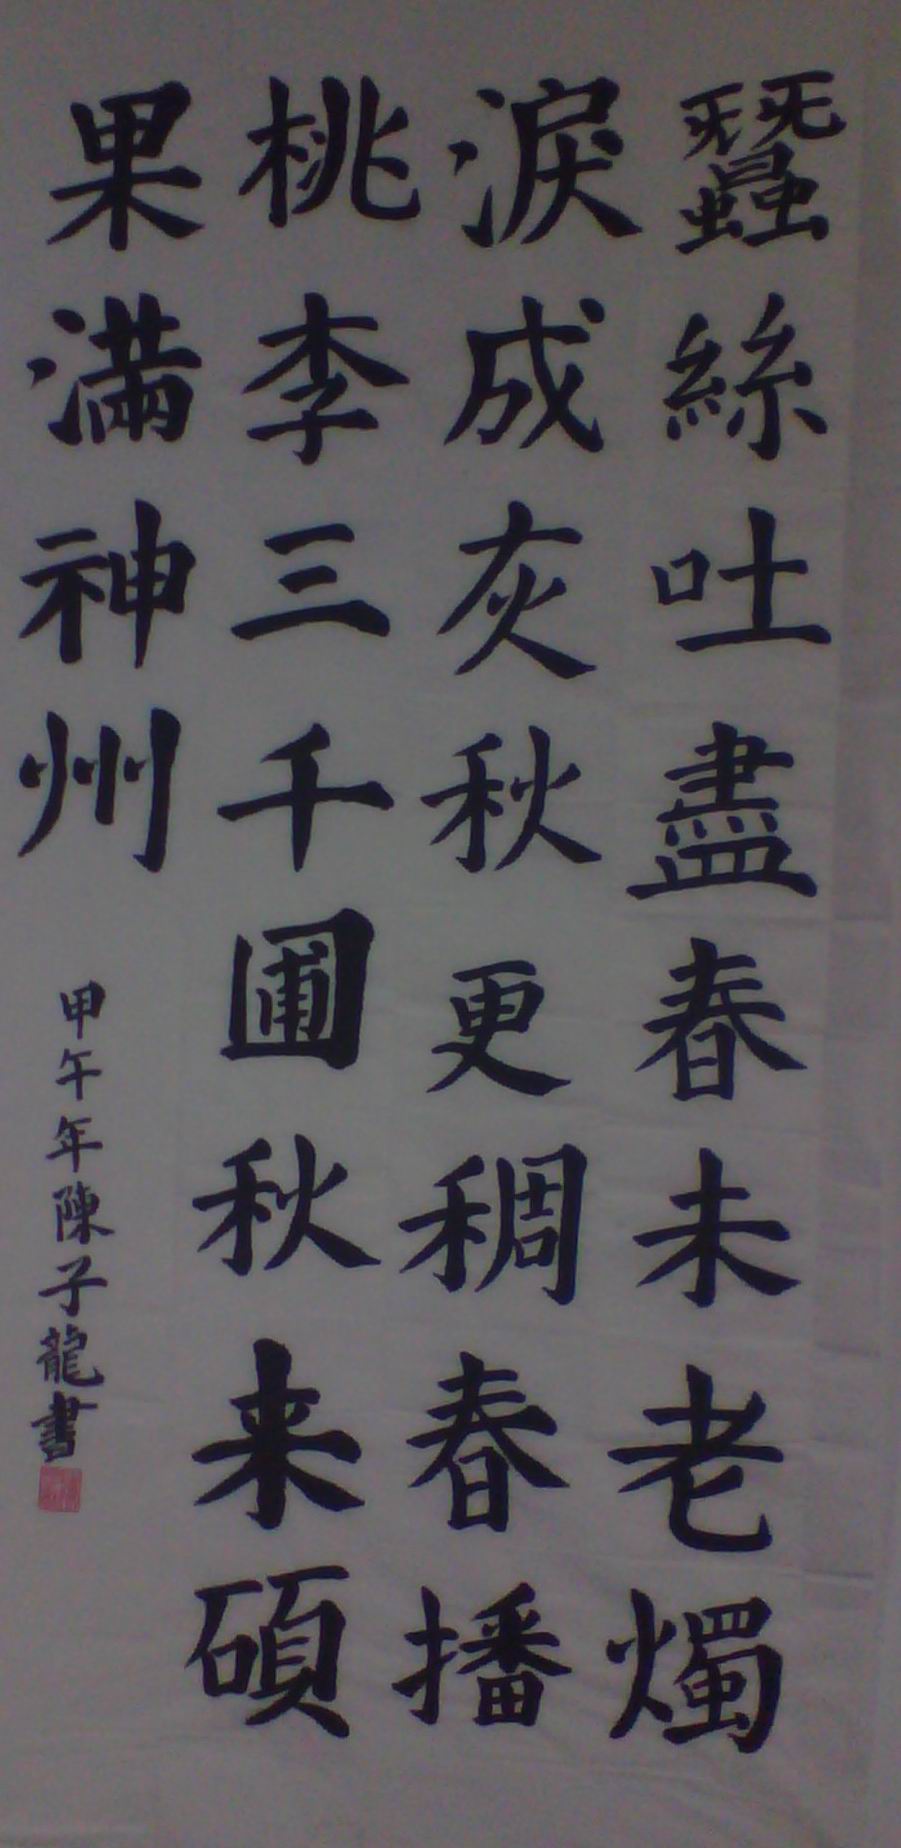 蠶絲吐盡春未老燭
淚成灰秋更稠春播
桃李三千圃秋来碩
果滿神州
甲午年陳子龍書